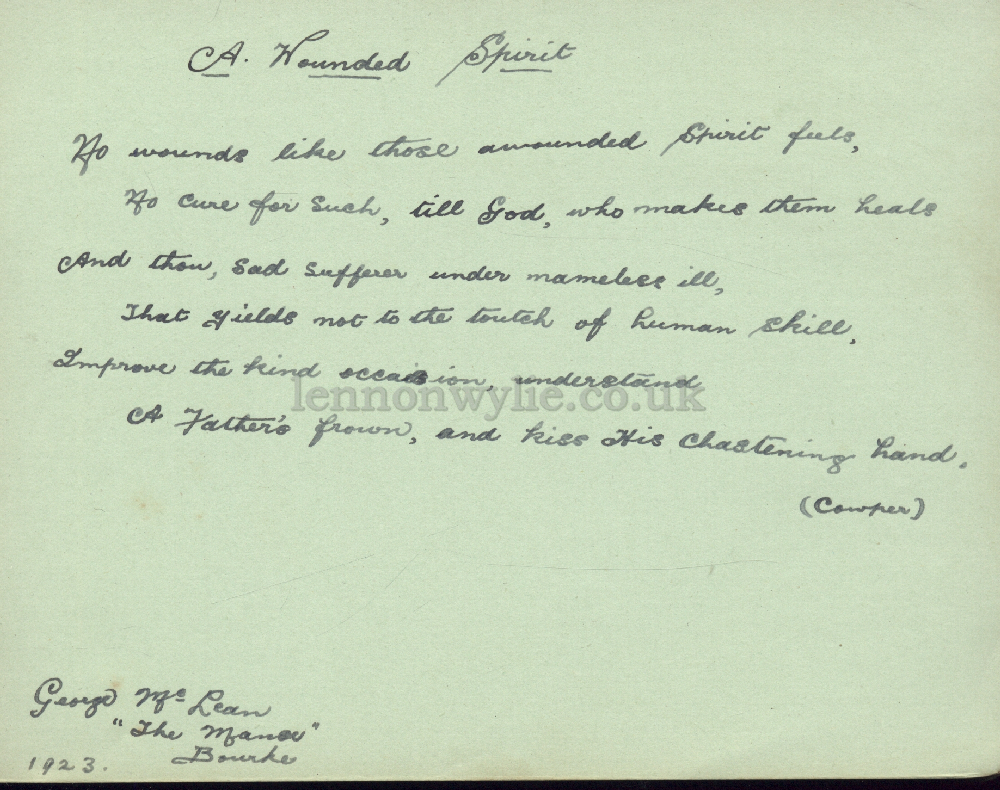 A. Wounded Spirit
No wounds like those awounded Spirit feels,
No cure for such, till God, who makes them heals
And thou, sad sufferer under mameless ill,
That yields not to the toutch of human skill,
Improve the kind occasion, understand
lennonwylie.co.uk
A Father's frown, and kiss His chastening hand.
(Cowper)
George Mc Lean
"The Manse"
Bourke
1923.